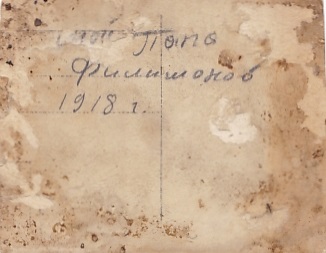 мой Папа
Филимонов
1918 г.